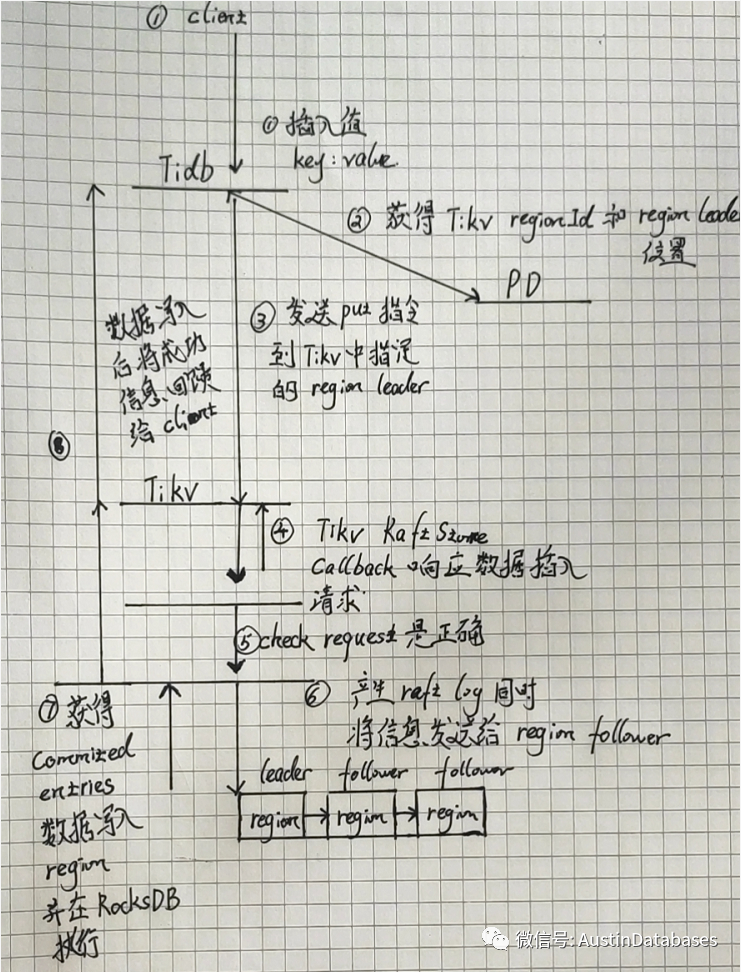 ① client
① 插入值
key:value.
Tidb
② 获得 Tikv regionId 和 region leader
位置
PD
③ 发送 put 指令
到 Tikv 中指定
的 region leader
数据写入
后将成功
信息回馈
给 client
⑧
Tikv
④ Tikv Raft Store
Callback 响应数据插入
请求
⑤check request 是正确
⑥ 产生 raft log 同时
将信息发送给 region follower
leader follower follower
region region region
⑦ 获得
Committed
entries
数据写入
region
并在 RocksDB
执行
微信号: AustinDatabases